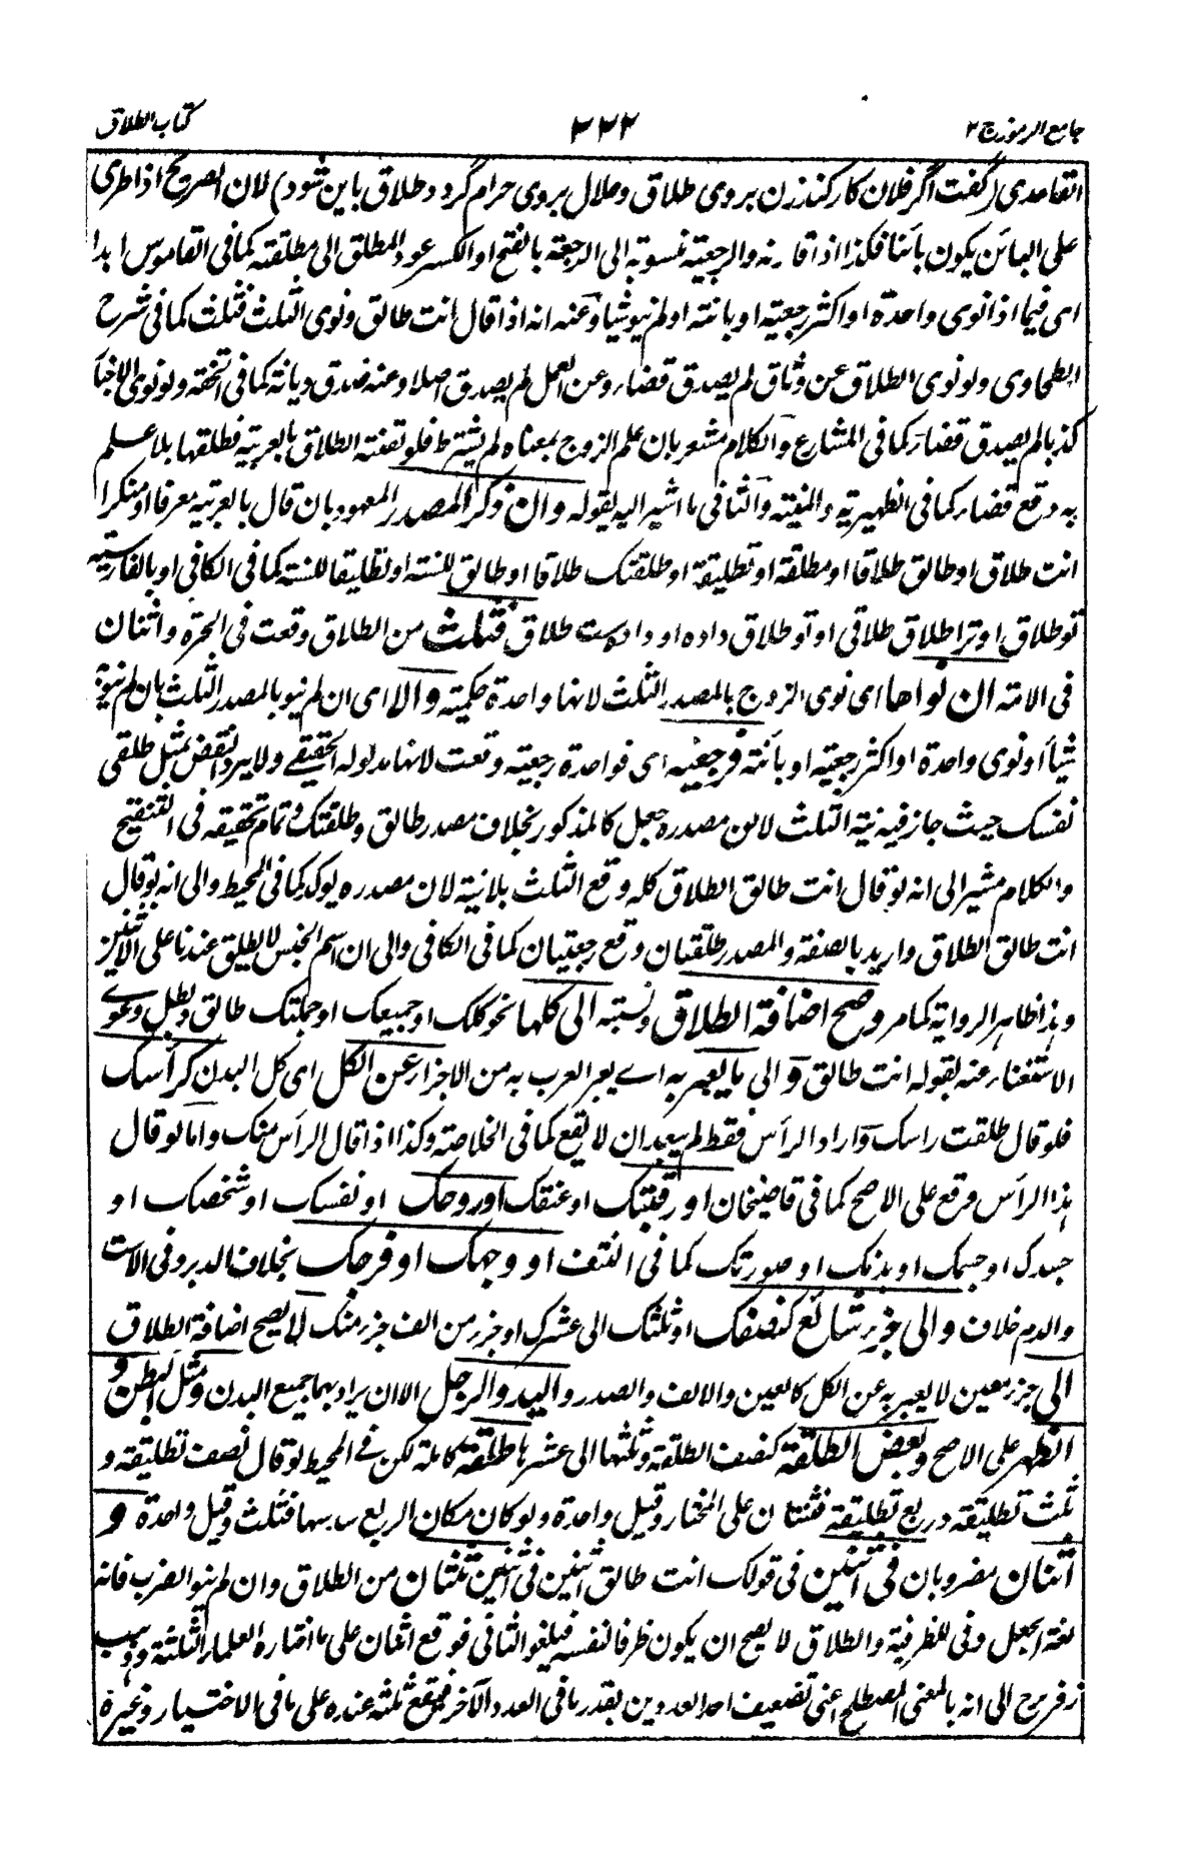 جامع الرموز ج ٢
٢٢٢
كتاب الطلاق
القاعدى (گفت اگر فلان كار كند زن بروى طلاق وحلال بروى حرام گردد طلاق باين شود) لان الصريح اذا طرى
على البائن يكون بائنا فكذا اذا قارنه والرجعية نسوبة الى الرجعة بالفتح او الكسر عود المطلق الى مطلقته كما فى القاموس ابدا
اى فيما اذا نوى واحدة او اكثر رجعية او بائنة او لم ينو شيأ وعنه انه اذا قال انت طالق ونوى الثلث فثلث كما فى شرح
الطحاوى ولو نوى الطلاق عن وثاق لم يصدق قضاء وعن العمل لم يصدق اصلا وعنه صدق ديانة كما فى التحفة ولو نوى الاخبا
كذبا لم يصدق قضاء كما فى المشارع والكلام مشعر بان علم الزوج بمعناه لم يشترط فلو لقنته الطلاق بالعربية فطلقها بلا علم
به وقع قضاء كما فى الظهيرية والمنية والثانى ما اشير اليه بقوله وان ذكر المصدر المعهود بان قال بالعربية معرفا او منكرا
انت طلاق او طالق طلاقا او مطلقة او تطليقة او طلقتك طلاقا او طالق للسنة او تطليقا للسنة كما فى الكافى او بالفارسية
تو طلاق او ترا طلاق طلاقى او تو طلاق داده او دادست طلاق فثلث من الطلاق وقعت فى الحرة واثنتان
فى الامة ان نواها اى نوى الزوج بالمصدر الثلث لانها واحدة حكمية والا اى ان لم ينو بالمصدر الثلث بان لم ينو
شيأ او نوى واحدة او اكثر رجعية او بائنة فرجعية اى فواحدة رجعية وقعت لانها مدلوله الحقيقے ولا يرد النقض بمثل طلقى
نفسك حيث جاز فيه نية الثلث لان مصدره جعل كالمذكور بخلاف مصدر طالق وطلقتك وتمام تحقيقه فى التنقيح
والكلام مشير الى انه لو قال انت طالق الطلاق كله وقع الثلث بلانية لان مصدره يوكد كما فى المحيط والى انه لو قال
انت طالق الطلاق واريد بالصفة والمصدر طلقتان وقع رجعيتان كما فى الكافى والى ان اسم الجنس لا يطلق عندنا على الاثنين
وهذا ظاهر الرواية كما مر وصح اضافة الطلاق ونسبته الى كلها نحو كلك او جميعك او جملتك طالق وبطل دعوے
الاستغناء عنه بقوله انت طالق والى ما يعبر به اے يعبر العرب به من الاجزاء عن الكل اى كل البدن كرأسك
فلو قال طلقت راسك واراد الرأس فقط لم يبعد ان لا يقع كما فى الخلاصة وكذا اذا قال الرأس منك واما لو قال
هذا الرأس فوقع على الاصح كما فى قاضيخان او رقبتك او عنقك او روحك او نفسك او شخصك او
جسدك او جسمك او بدنك او صورتك كما فى النتف او وجهك او فرجك بخلاف الدبر وفى الاست
والدم خلاف والى جزء شائع كنصفك او ثلثك الى عشرك او جزء من الف جزء منك لا يصح اضافة الطلاق
الى جزء معين لا يعبر به عن الكل كالعين والانف والصدر واليد والرجل الا ان يراد بهما جميع البدن ومثل البطن و
الظهر على الاصح وبعض الطلقة كنصف الطلقة وثلثها الى عشرها طلقة كاملة لكن فے المحيط لو قال نصف تطليقة و
ثلث تطليقة وربع تطليقة فثنتان على المختار وقيل واحدة ولو كان مكان الربع سدسها فثلث وقيل واحدة و
اثنتان مضروبان فى اثنين فى قولك انت طالق اثنين فى اثنين ثنتان من الطلاق وان لم ينو الضرب فانه
لغة الجعل وفى للظرفية والطلاق لا يصح ان يكون ظرفا لنفسه فيلغو الثانى فوقع اثنان على ما اختاره العلماء الثلثة وذهب
زفر رح الى انه بالمعنى المصطلح اعنى تضعيف احد العددين بقدر ما فى العدد الآخر فوقع ثلثة عنده على ما فى الاختيار وغيره